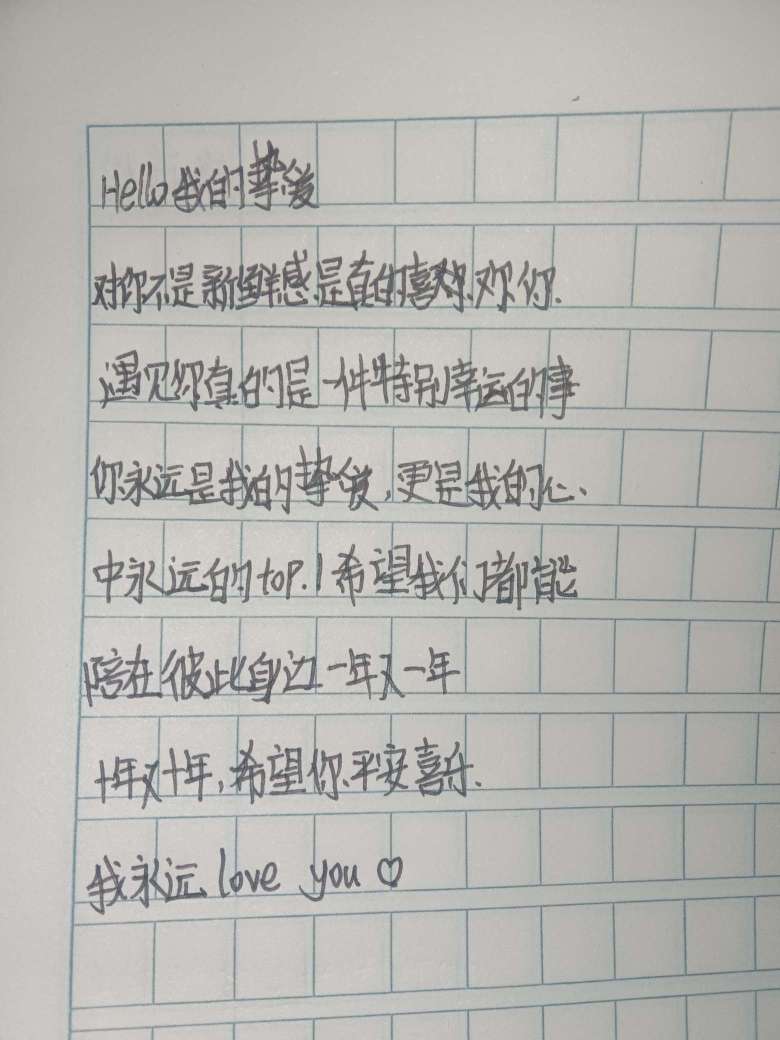 Hello 我的挚爱
对你不是新鲜感.是真的喜欢.欢你.
遇见你真的是一件特别幸运的事
你永远是我的挚爱,更是我的心
中永远的top.1希望我们都能
陪在彼此身边一年又一年
十年又十年,希望你平安喜乐.
我永远 love you ♡